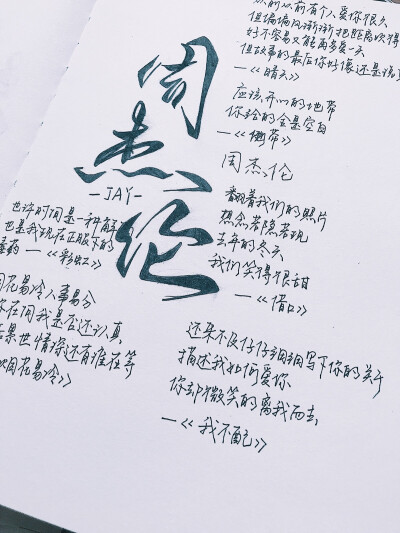 从前从前有个人爱你很久
但偏偏风渐渐把距离吹得
好不容易又能再多爱一天
但故事的最后你好像还是说了
—《晴天》
应该开心的地带
你给的全是空白
—《侧带》
周杰伦
周杰伦
—JAY—
翻着我们的照片
想念若隐若现
去年的冬天
我们笑得很甜
—《借口》
也许时间是一种解
也是我现在正服下的
毒药—《彩虹》
烟花易冷人事易分
你在问我是否还认真
后果世情深还有谁在等
《烟花易冷》
还来不及仔仔细细写下你的关于
描述我如何爱你
你却微笑的离我而去
—《我不配》